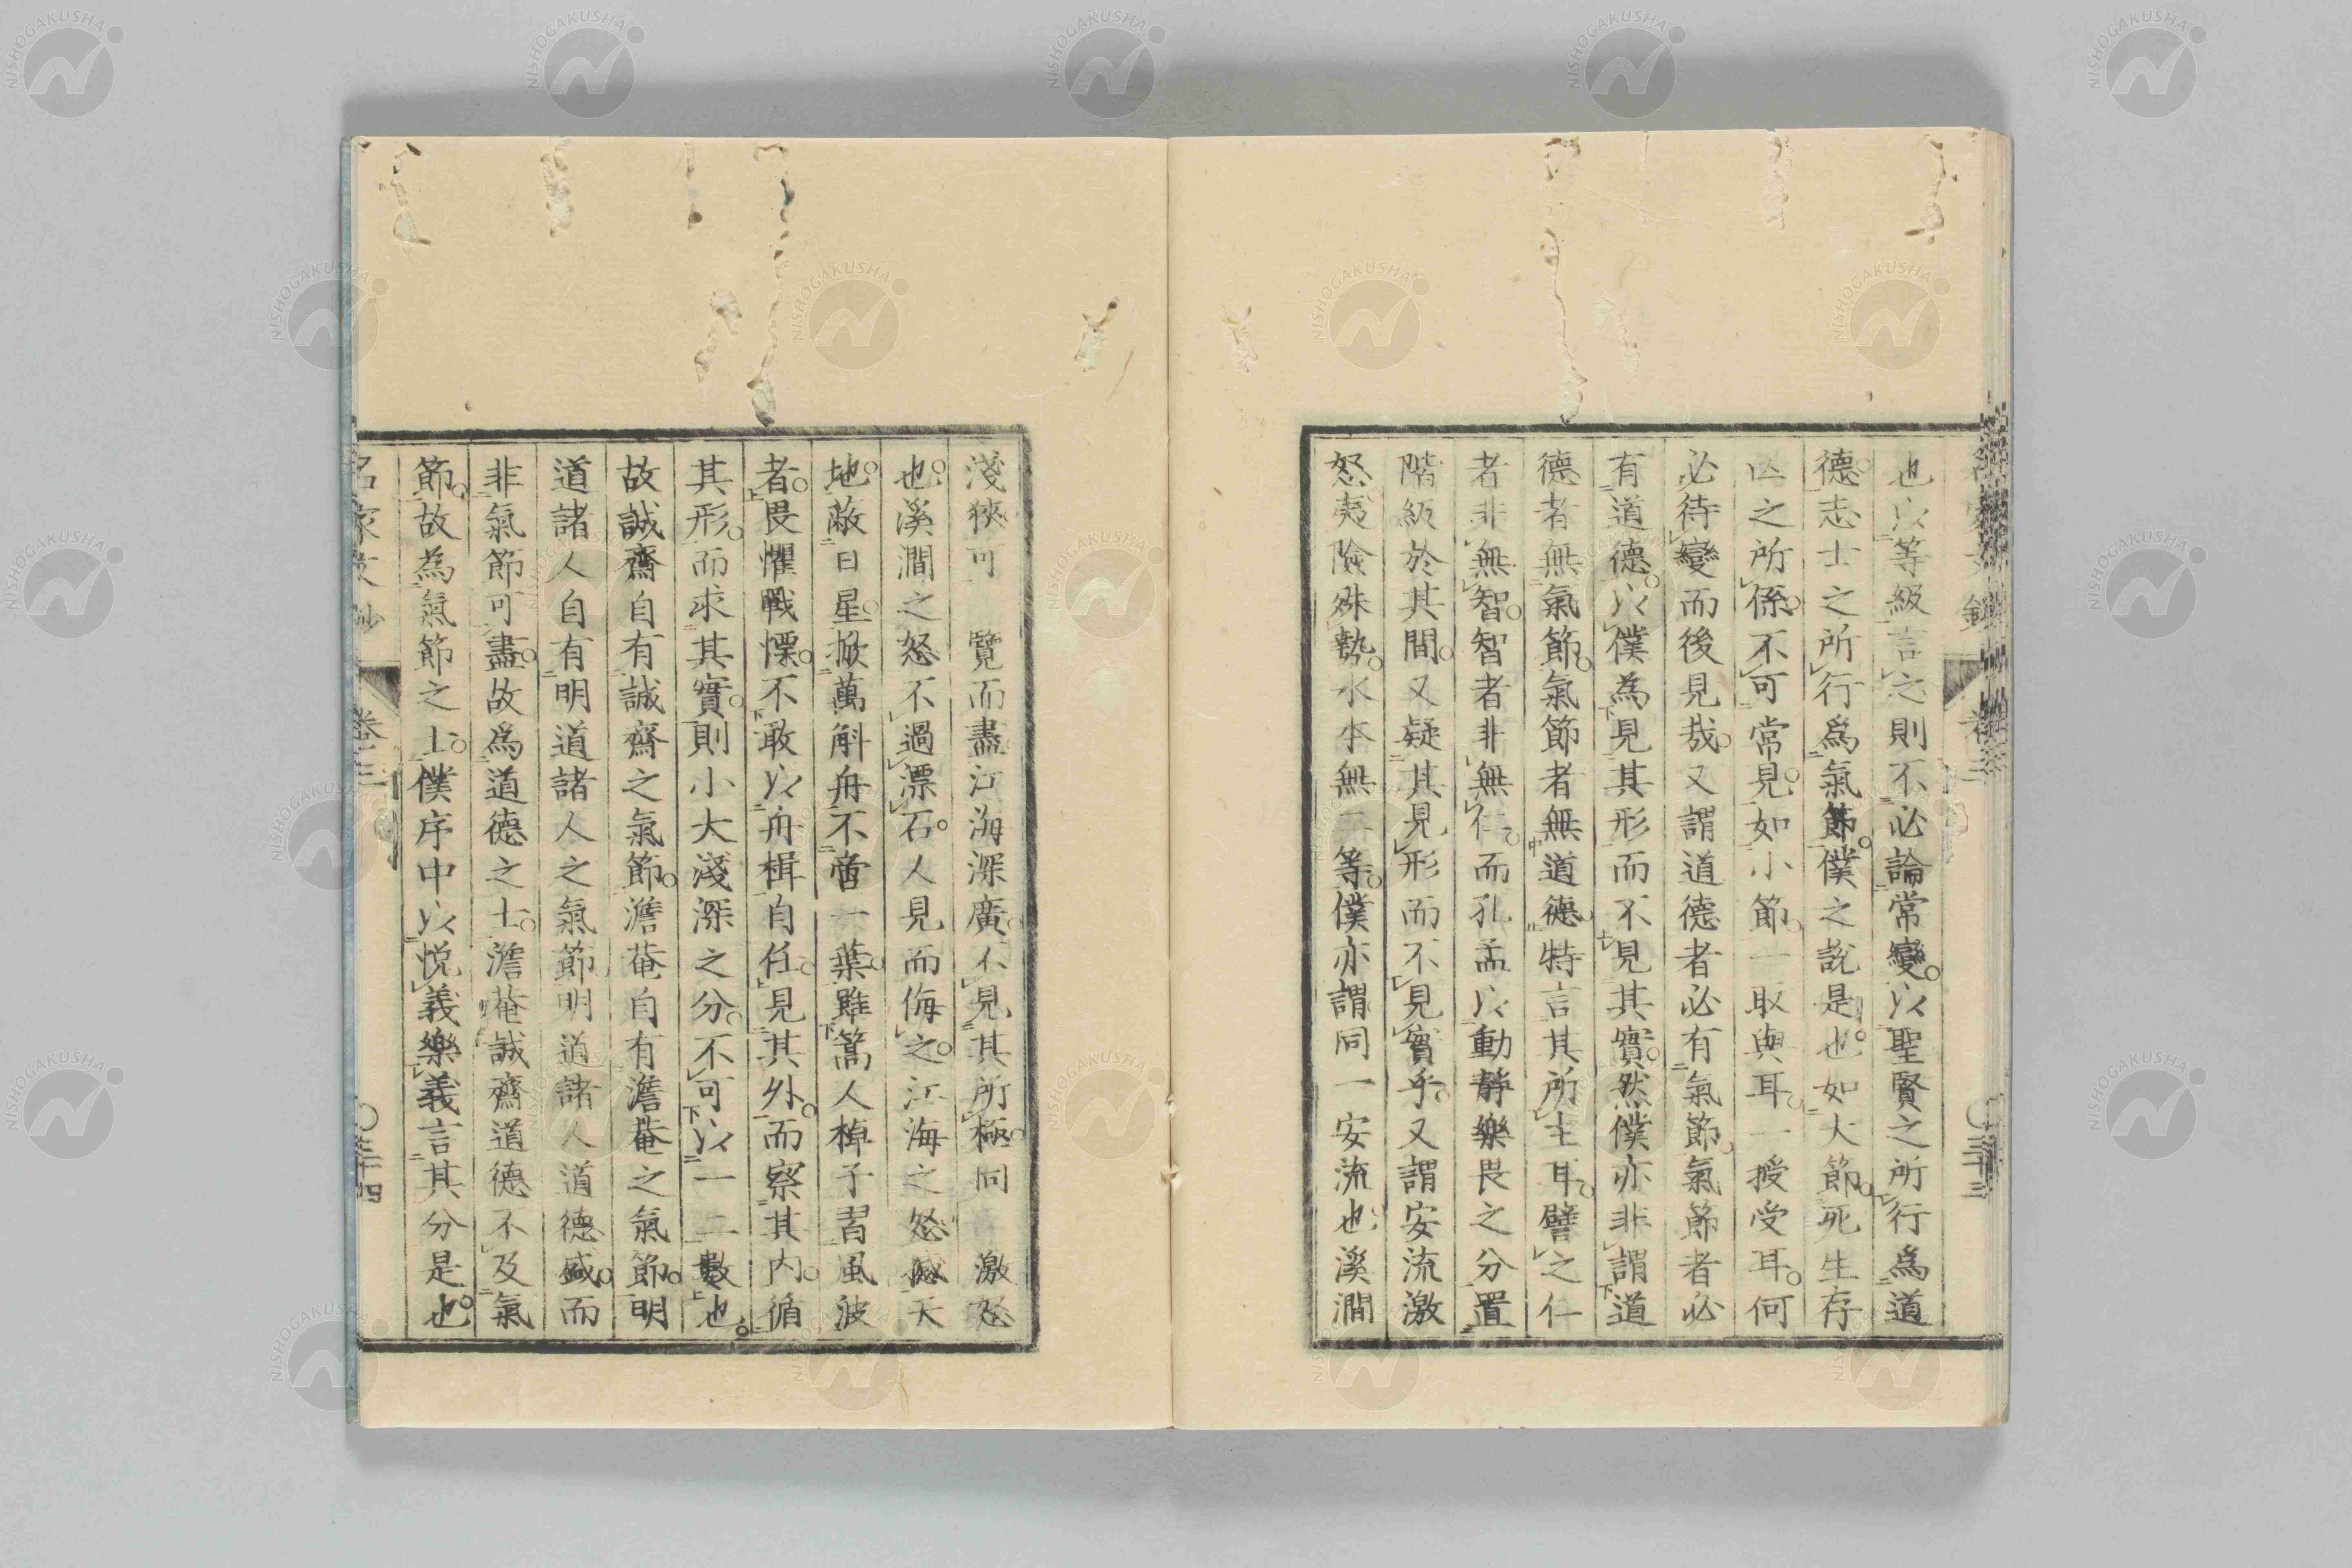 也以等級言之則不必論常變以聖賢之所行爲道
德志士之所行爲氣節僕之説是也如大節死生存
亡之所係不可常見如小節一取與耳一授受耳何
必待變而後見哉又謂道德者必有氣節氣節者必
有道德以僕為見其形而不見其實然僕亦非謂道
德者無氣節氣節者無道德特言其所主耳譬之仁
者非無智智者非無仁而孔孟以動靜樂畏之分置
階級於其間又疑其見形而不見實乎又謂安流激
怒夷險殊勢水本無二等僕亦謂同一安流也溪澗
淺狹可覽而盡江海深廣不見其所極同激怒
也溪澗之怒不過漂石人見而侮之江海之怒滅天
地蔽日星掀萬斛舟不啻一葉雖篙人棹子習風波
者畏懼戰慄不敢以舟楫自任見其外而察其内循
其形而求其實則小大淺深之分不可以一二數也
故誠齋自有誠齋之氣節澹菴自有澹菴之氣節明
道諸人自有明道諸人之氣節明道諸人道德盛而
非氣節可盡故爲道德之士澹菴誠齋道德不及氣
節故為氣節之士僕序中以悦義樂義言其分是也
名家文鈔 卷三 三十四